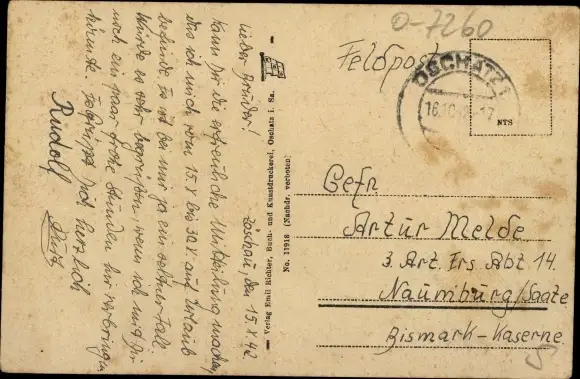 Zöschau, den 15.X.42.
Lieber Bruder!
Kann Dir die erfreuliche Mitteilung machen,
das ich mich vom 15.X bis 30.X. auf Urlaub
befinde. Es ist bei mir ja ein seltner Fall
Würde es sehr begrüßen wenn ich mit Dir
noch ein paar frohe Stunden hir verbringen
könnte. Es grüßt Dich herzlich
Rudolf
Verlag Emil Richter, Buch- und Kunstdruckerei, Oschatz i. Sa.
No. 11918 (Nachdr. verboten)
O-7260
Feldpost
OSCHATZ 1
16.10.
NTS
Gefr
Artur Melde
3. Art. Ers. Abt 14.
Naumburg/Saale
Bismark-Kaserne
5